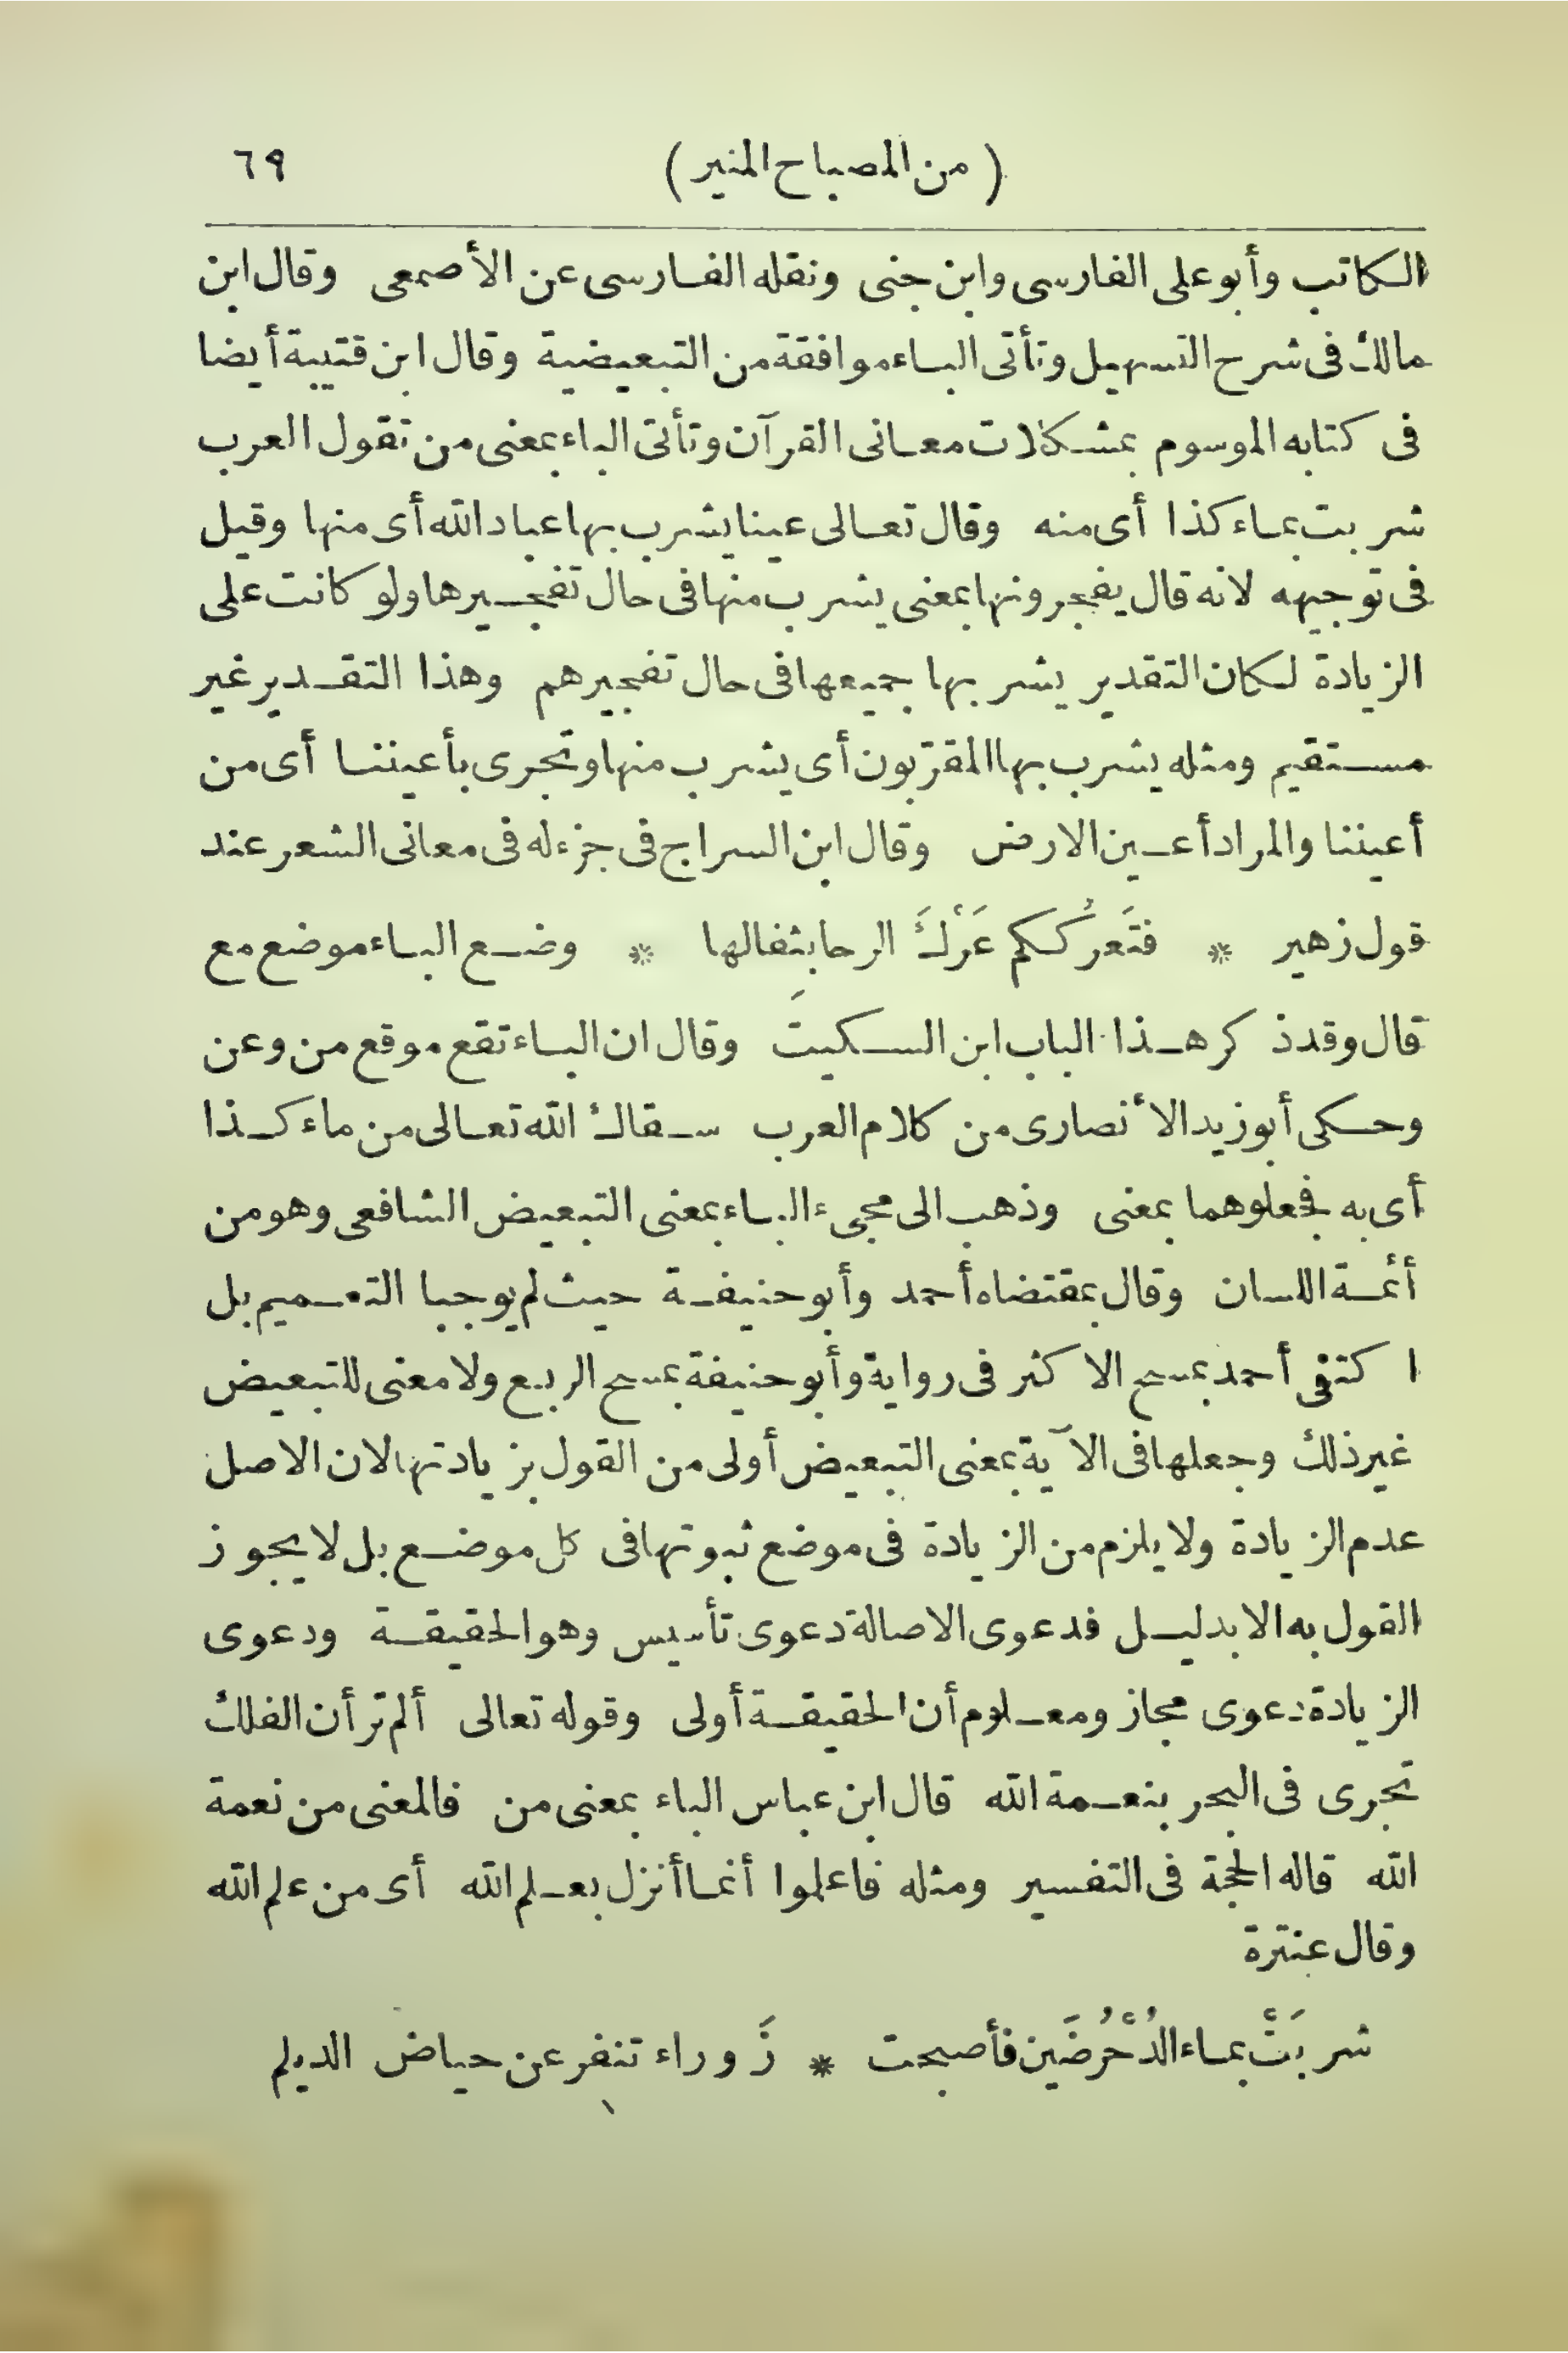 ( من المصباح المنير ) ٦٩
الكاتب وأبو على الفارسى وابن جنى ونقله الفارسى عن الأصمعى وقال ابن
مالك فى شرح التسهيل وتأتى الباء موافقة من التبعيضية وقال ابن قتيبة أيضا
فى كتابه الموسوم بمشكلات معانى القرآن وتأتى الباء بمعنى من تقول العرب
شربت بماء كذا أى منه وقال تعالى عينا يشرب بها عباد الله أى منها وقيل
فى توجيهه لانه قال يفجرونها بمعنى يشرب منها فى حال تفجيرها ولو كانت على
الزيادة لكان التقدير يشربها جميعها فى حال تفجيرهم وهذا التقدير غير
مستقيم ومثله يشرب بها المقرّبون أى يشرب منها وتجرى بأعيننا أى من
أعيننا والمراد أعين الارض وقال ابن السراج فى جزء له فى معانى الشعر عند
قول زهير * فتَعرُككم عَرْكَ الرحا بِثفالها * وضع الباء موضع مع
قال وقد ذكر هذا الباب ابن السكيت وقال ان الباء تقع موقع من وعن
وحكى أبو زيد الأنصارى من كلام العرب سقاك الله تعالى من ماء كذا
أى به فجعلوهما بمعنى وذهب الى مجىء الباء بمعنى التبعيض الشافعى وهو من
أئمة اللسان وقال بمقتضاه أحمد وأبو حنيفة حيث لم يوجبا التعميم بل
اكتفى أحمد بمسح الاكثر فى رواية وأبو حنيفة بمسح الربع ولا معنى للتبعيض
غير ذلك وجعلها فى الآية بمعنى التبعيض أولى من القول بزيادتها لان الاصل
عدم الزيادة ولا يلزم من الزيادة فى موضع ثبوتها فى كل موضع بل لا يجوز
القول به الا بدليل فدعوى الاصالة دعوى تأسيس وهو الحقيقة ودعوى
الزيادة دعوى مجاز ومعلوم أن الحقيقة أولى وقوله تعالى ألم تر أن الفلك
تجرى فى البحر بنعمة الله قال ابن عباس الباء بمعنى من فالمعنى من نعمة
الله قاله الحجة فى التفسير ومثله فاعلموا أنما أنزل بعلم الله أى من علم الله
وقال عنترة
شربَتْ بماء الدُّحْرُضَين فأصبحت * زَوراء تنفِر عن حياض الديلم